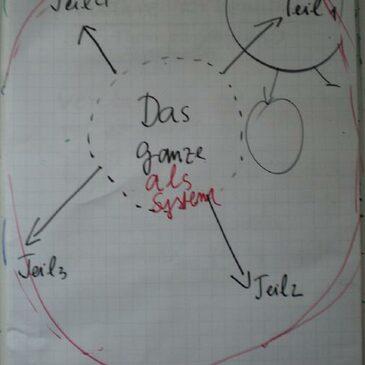 Teil4
Teil1
Das
ganze
als
System
Teil3
Teil2